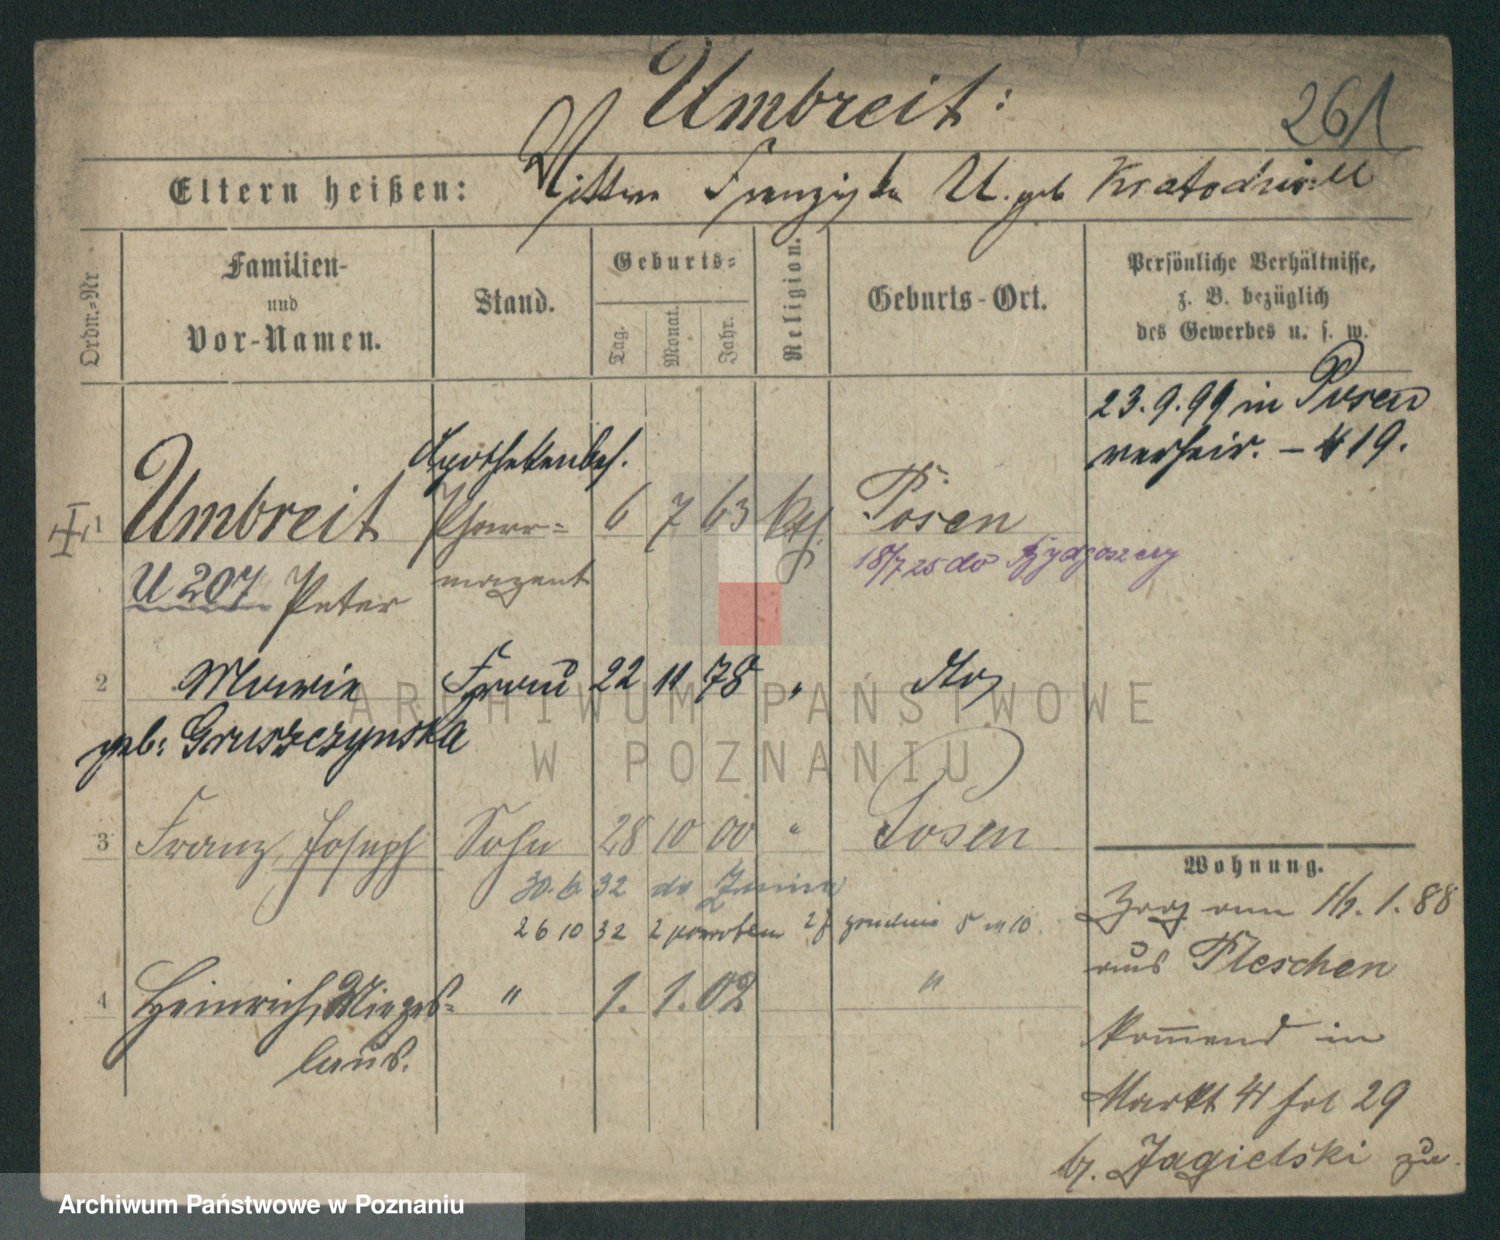 Umbreit:
261
Eltern heißen: Franziska U. geb
Ordn.-Nr
Familien-
und
Vor-Namen.
Stand.
Geburts-
Tag.
Monat.
Jahr.
Religion.
Geburts-Ort.
Persönliche Verhältnisse,
z. B. bezüglich
des Gewerbes u. s. w.
23.9.99 in Posen
verheir. – 419.
Apothekenbes.
1 Umbreit Phar- 6 7 63 kth. Posen
U 207 Peter mazeut 18/7 25 do Bydgoszczy
2 Marie Frau 22 11 78 " do
geb: Gruszczynska
3 Franz, Joseph Sohn 28 10 00 " Posen
30.6 32 do
26 10 32 z powrotem 27 grudnia 5 m 10.
4 Heinrich, Miezes- " 1. 1. 02 "
laus.
Wohnung.
Zog am 16.1.88
aus Pleschen
kommend in
Markt 41 fol 29
b. Jagielski zu.
ARCHIWUM PAŃSTWOWE
W POZNANIU
Archiwum Państwowe w Poznaniu